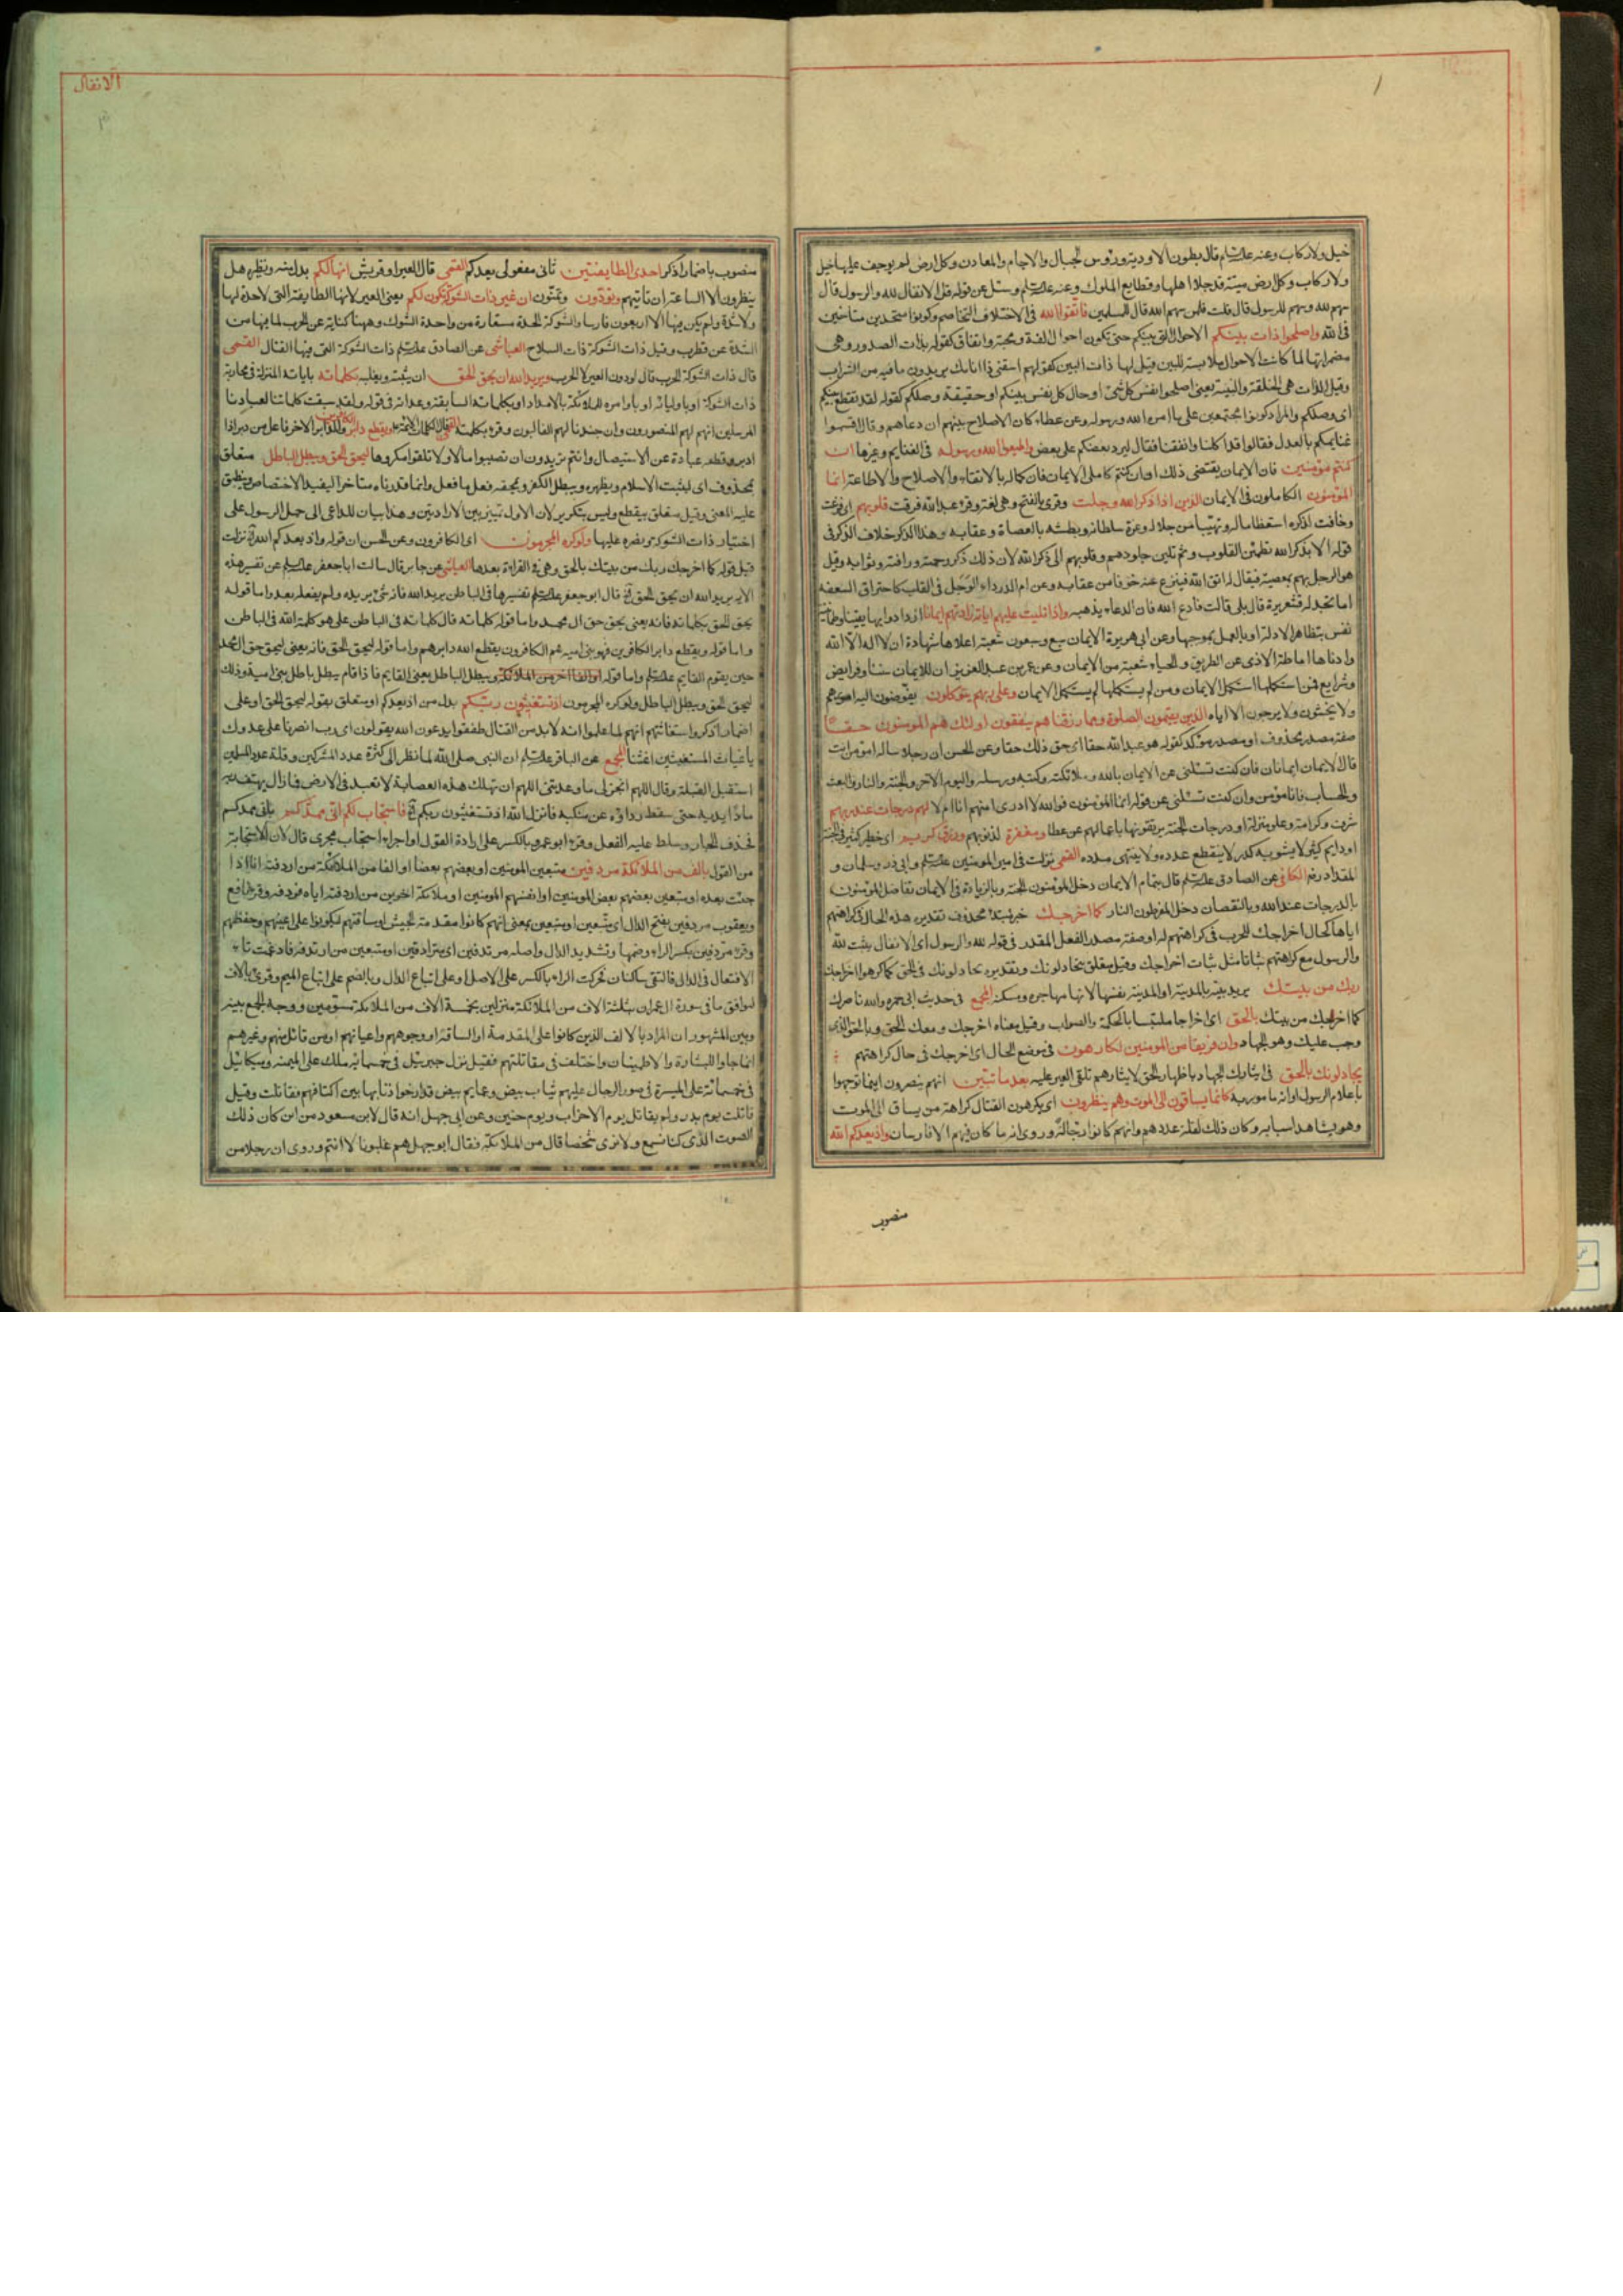 الانفال
خيل ولا ركاب وعنه عليه السلام قال بطون الاودية ورؤس الجبال والاجام والمعادن وكل ارض لم يوجف عليها خيل
ولا ركاب وكل ارض ميتة قد جلا اهلها وقطايع الملوك وعنه عليه السلام وسئل عن قوله قل الانفال لله والرسول قال
سهم لله وسهم للرسول قال قلت فلمن سهم الله قال للمسلمين فاتقوا الله في الاختلاف والتخاصم وكونوا متحدين متآخين
في الله واصلحوا ذات بينكم الاحوال التي بينكم حتى تكون احوال الفة ومحبة واتفاق كقوله بذات الصدور وهى
مضمراتها لما كانت الاحوال ملابسة للبين قيل لها ذات البين كقولهم اسقني ذا انائك يريدون ما فيه من الشراب
وقيل الذات هى الخلقة والبنية يعنى اصلحوا نفس كل شئ او حال كل نفس بينكم او حقيقة وصلكم كقوله لقد تقطع بينكم
اى وصلكم والمراد كونوا مجتمعين على ما امر الله ورسوله وعن عطا كان الاصلاح بينهم ان دعاهم وقال اقسموا
غنايمكم بالعدل فقالوا قد اكلنا وانفقنا فقال ليرد بعضكم على بعض واطيعوا الله ورسوله في الغنايم وغيرها ان
كنتم مؤمنين فان الايمان يقتضى ذلك او ان كنتم كاملى الايمان فان كماله بالاتقاء والاصلاح والاطاعة انما
المؤمنون الكاملون في الايمان الذين اذا ذكر الله وجلت وقرى بالفتح وهى لغة وقرء عبد الله فرقت قلوبهم اى فزعت
وخافت لذكره استعظاما له وتهيبا من جلاله وعزة سلطانه وبطشه بالعصاة وعقابه وهذا الذكر خلاف الذكر في
قوله الا بذكر الله تطمئن القلوب وثم تلين جلودهم وقلوبهم الى ذكر الله لان ذلك ذكر رحمته ورافته وثوابه وقيل
هو الرجل يهم بمعصية فيقال له اتق الله فينزع عنه خوفا من عقابه وعن ام الدرداء الوجل في القلب كاحتراق السعفة
اما تجد له قشعريرة قال بلى قالت فادع الله فان الدعاء يذهبه واذا تليت عليهم اياته زادتهم ايمانا ازدادوا بها يقينا وطمانينة
نفس بتظاهر الادلة او بالعمل بموجبها وعن ابى هريرة الايمان سبع وسبعون شعبة اعلاها شهادة ان لا اله الا الله
وادناها اماطة الاذى عن الطريق والحياء شعبة من الايمان وعن عمر بن عبد العزيز ان للايمان سننا وفرايض
وشرايع فمن استكملها استكمل الايمان ومن لم يستكملها لم يستكمل الايمان وعلى ربهم يتوكلون يفوضون اليه امورهم
ولا يخشون ولا يرجون الا اياه الذين يقيمون الصلوة ومما رزقناهم ينفقون اولئك هم المؤمنون حقا
صفة مصدر محذوف او مصدر مؤكد كقوله هو عبد الله حقا اى حق ذلك حقا وعن الحسن ان رجلا ساله امؤمن انت
قال الايمان ايمانان فان كنت تسئلنى عن الايمان بالله وملائكته وكتبه ورسله واليوم الاخر والجنة والنار والبعث
والحساب فانا مؤمن وان كنت تسئلنى عن قوله انما المؤمنون فوالله لا ادرى امنهم انا ام لا لهم درجات عند ربهم
شرف وكرامة وعلو منزلة او درجات الجنة يرتقونها باعمالهم عن عطا ومغفرة لذنوبهم ورزق كريم اى خطير كثير في الجنة
او دايم كثير لا يشوبه كدر لا ينقطع عدده ولا ينتهى مدده القمى نزلت في امير المؤمنين عليه السلام وابى ذر وسلمان و
المقداد رضه الكافي عن الصادق عليه السلام قال بتمام الايمان دخل المؤمنون الجنة وبالزيادة في الايمان تفاضل المؤمنون
بالدرجات عند الله وبالنقصان دخل المفرطون النار كما اخرجك خبر مبتدا محذوف تقديره هذه الحال في كراهتهم
اياها كحال اخراجك للحرب في كراهتهم له او صفة مصدر الفعل المقدر في قوله لله والرسول اى الانفال يثبت لله
والرسول مع كراهتهم ثباتا مثل ثبات اخراجك وقيل متعلق بيجادلونك وتقديره يجادلونك في الحق كما كرهوا اخراجك
ربك من بيتك يريد بيته بالمدينة او المدينة نفسها لانها مهاجره ومسكنه المجمع في حديث ابى حمزه والله ناصرك
كما اخرجك من بيتك بالحق اى اخراجا ملتبسا بالحكمة والصواب وقيل معناه اخرجك ومعك الحق وبالحق الذى
وجب عليك وهو الجهاد وان فريقا من المؤمنين لكارهون في موضع الحال اى اخرجك في حال كراهتهم
يجادلونك بالحق في ايثارك الجهاد باظهار الحق لايثارهم تلقى العير عليه بعد ما تبين انهم ينصرون اينما توجهوا
باعلام الرسول او انه مامور به كانما يساقون الى الموت وهم ينظرون اى يكرهون القتال كراهة من يساق الى الموت
وهو يشاهد اسبابه وكان ذلك لقلة عددهم وانهم كانوا رجالة وروى انه ما كان فيهم الا فارسان واذ يعدكم الله
منصوب
منصوب باضمار اذكر احدى الطايفتين ثانى مفعولى يعدكم القمى قال العير او قريش انها لكم بدل منه ونظيره هل
ينظرون الا الساعة ان تأتيهم وتودون وتمنون ان غير ذات الشوكة تكون لكم يعنى العير لانها الطايفة التى لا حدة لها
ولا شدة ولم يكن فيها الا اربعون فارسا والشوكة الحدة مستعارة من واحدة الشوك وههنا كناية عن الحرب لما فيها من
الشدة عن قطرب وقيل ذات الشوكة ذات السلاح العياشى عن الصادق عليه السلام ذات الشوكة التى فيها القتال القمى
قال ذات الشوكة الحرب قال تودون العير لا الحرب ويريد الله ان يحق الحق ان يثبته ويعليه بكلماته باياته المنزلة في محاربة
ذات الشوكة او باوليائه او باوامره للملائكة بالامداد او بكلماته السابقة وعداته في قوله ولقد سبقت كلمتنا لعبادنا
المرسلين انهم لهم المنصورون وان جندنا لهم الغالبون وقرء بكلمته القمى قال الكلمات الائمة ع ويقطع دابر الكافرين والدابر الاخر فاعل من دبر اذا
ادبر وقطعه عبادة عن الاستيصال وانتم تريدون ان تصيبوا مالا ولا تلقوا مكروها ليحق الحق ويبطل الباطل متعلق
بمحذوف اى ليثبت الاسلام ويظهره ويبطل الكفر ويمحقه فعل ما فعل وانما قدرناه متاخرا ليفيد الاختصاص وينطبق
عليه المعنى وقيل متعلق بيقطع وليس بتكرير لان الاول تمييز بين الارادتين وهذا بيان للداعى الى حمل الرسول على
اختيار ذات الشوكة ونصره عليها ولو كره المجرمون اى الكافرون وعن الحسن ان قوله واذ يعدكم الله نزلت
قبل قوله كما اخرجك ربك من بيتك بالحق وهى في القراءة بعدها العياشى عن جابر قال سالت ابا جعفر عليه السلام عن تفسير هذه
الاية يريد الله ان يحق الحق قال ابو جعفر عليه السلام تفسيرها في الباطن يريد الله فانه شئ يريده ولم يفعله بعد واما قوله
يحق الحق بكلماته فانه يعنى يحق حق ال محمد واما قوله كلماته قال كلماته في الباطن على هو كلمة الله في الباطن
واما قوله ويقطع دابر الكافرين فهو بنى امية هم الكافرون يقطع الله دابرهم واما قوله ليحق الحق فانه يعنى ليحق حق ال محمد
حين يقوم القايم عليه السلام واما قوله ويبطل الباطل يعنى القايم فاذا قام يبطل باطل بنى امية وذلك
ليحق الحق ويبطل الباطل ولو كره المجرمون اذ تستغيثون ربكم بدل من اذ يعدكم او متعلق بقوله ليحق الحق او على
اضمار اذكر واستغاثتهم انهم لما علموا انه لا بد من القتال طفقوا يدعون الله يقولون اى رب انصرنا على عدوك
يا غياث المستغيثين اغثنا المجمع عن الباقر عليه السلام ان النبى صلى الله لما نظر الى كثرة عدد المشركين وقلة عدد المسلمين
استقبل القبلة وقال اللهم انجز لى ما وعدتنى اللهم ان تهلك هذه العصابة لا تعبد في الارض فما زال يهتف ربه
مادا يديه حتى سقط رداؤه عن منكبه فانزل الله اذ تستغيثون ربكم فاستجاب لكم انى ممدكم بانى ممدكم
فحذف الجار وسلط عليه الفعل وقرء ابو عمرو بالكسر على ارادة القول او اجراء استجاب مجرى قال لان الاستجابة
من القول بالف من الملائكة مردفين متبعين المؤمنين او بعضهم بعضا او الفا من الملائكة من اردفته انا اذا
جئت بعده او متبعين بعضهم بعض المؤمنين او انفسهم المؤمنين او ملائكة اخرين من اردفته اياه فردفه وقرء نافع
ويعقوب مردفين بفتح الدال اى متبعين او متبعين بمعنى انهم كانوا مقدمة الجيش او ساقتهم ليكونوا على اعينهم وحفظهم
وقرء مردفين بكسر الراء وضمها وتشديد الدال واصله مرتدفين اى مترادفين او متبعين من ارتدفه فادغمت تاء
الافتعال في الدال فالتقى ساكنان فحركت الراء بالكسر على الاصل او على اتباع الدال وبالضم على اتباع الميم وقرئ بالاف
ليوافق ما في سورة ال عمران بثلثة الاف من الملائكة منزلين بخمسة الاف من الملائكة مسومين ووجه الجمع بينه
وبين المشهور ان المراد بالالف الذين كانوا على المقدمة او الساقة او وجوههم واعيانهم او من قاتل منهم وغيرهم
انما جاوا للبشارة والاطمينان واختلف في مقاتلتهم فقيل نزل جبرئيل في خمسمائة ملك على الميمنة وميكائيل
في خمسمائة على الميسرة في صور الرجال عليهم ثياب بيض وعمايم بيض قد ارخوا اذنابها بين اكتافهم فقاتلت وقيل
قاتلت يوم بدر ولم يقاتل يوم الاحزاب ويوم حنين وعن ابى جهل انه قال لابن مسعود من اين كان ذلك
الصوت الذى كنا نسمع ولا نرى شخصا قال من الملائكة فقال ابو جهل هم غلبونا لا انتم وروى ان رجلا من